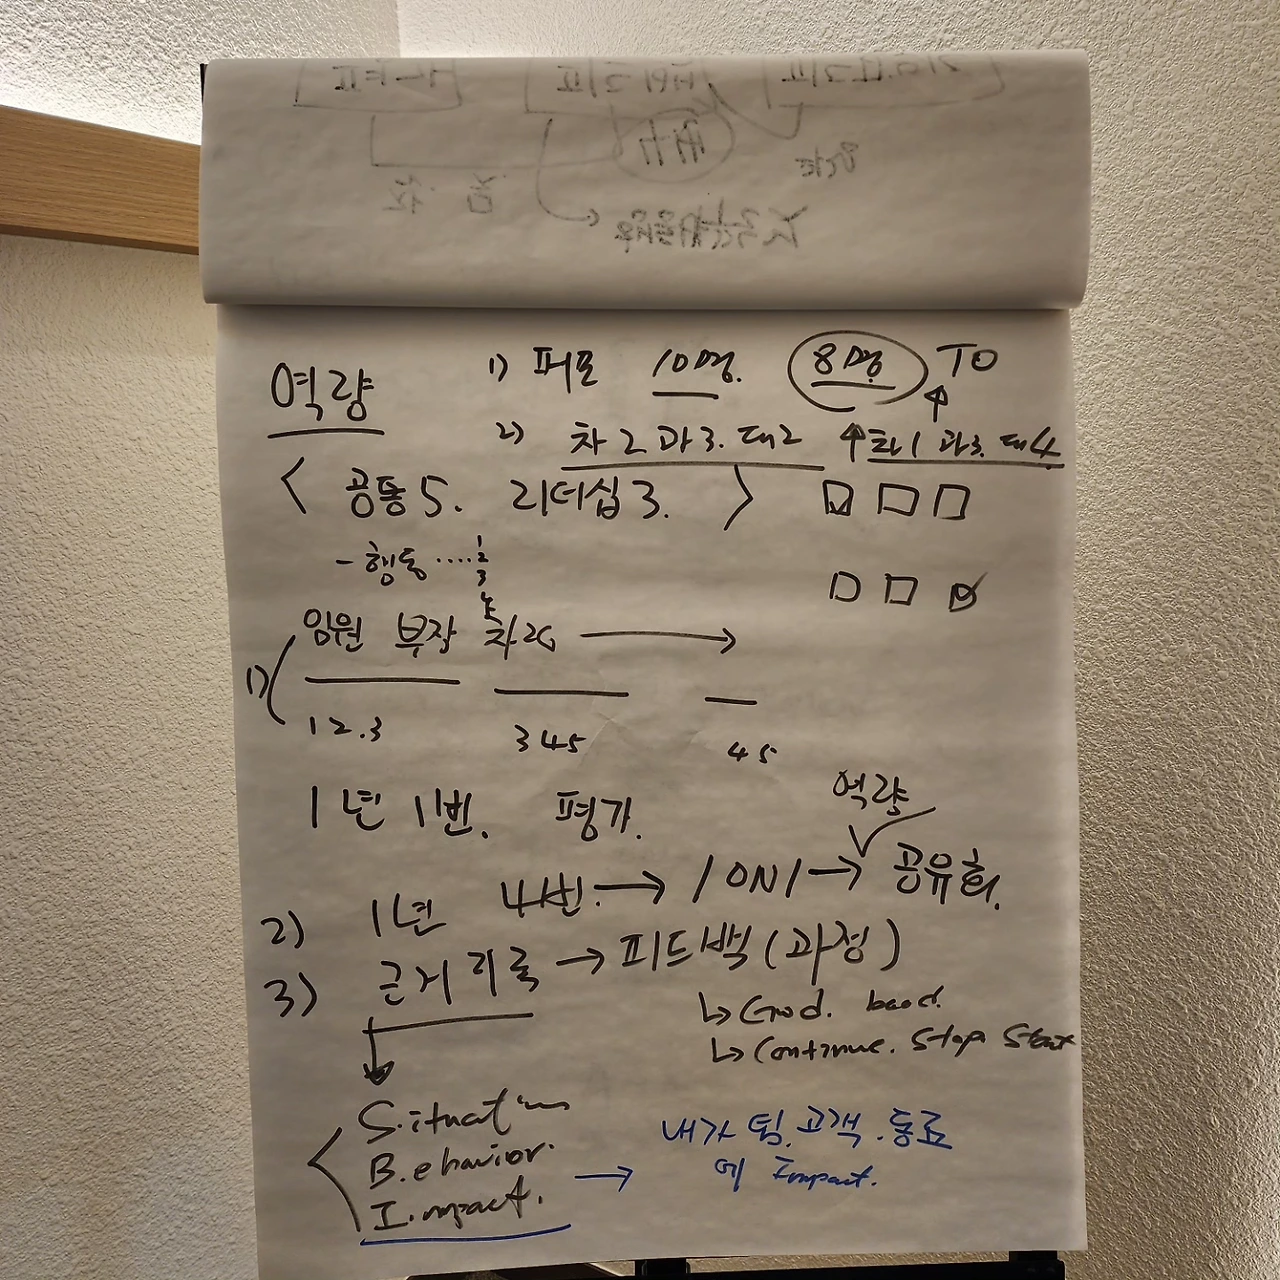 역량
1) 퍼포 10명. 8명 TO
2) 차2 과3. 대2 차1 과3. 대4
< 공통5. 리더십3. >
- 행동 ···· 1 2 3
1) 임원 부장 차장
1 2. 3 3 4 5 4 5
1년 1번. 평가.
역량
2) 1년 4번. → 1 ON 1 → 공유회.
3) 근거 기록 → 피드백 (과정)
↳ Good. bad.
↳ Continue. Stop Start
S.ituation
B.ehavior.
I.mpact. → 내가 팀. 고객. 동료
에 Impact.